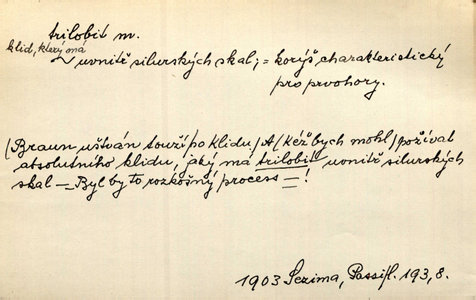 trilobit m.
klid, který má
uvnitř silurských skal; = korýš charakteristický
pro prvohory.
(Braun uštván touží po klidu) A (kéž bych mohl) požívat
absolutního klidu, aký má trilobit uvnitř silurských
skal — Byl by to rozkošný process — !
1903 Sezima, Passifl. 193,8.